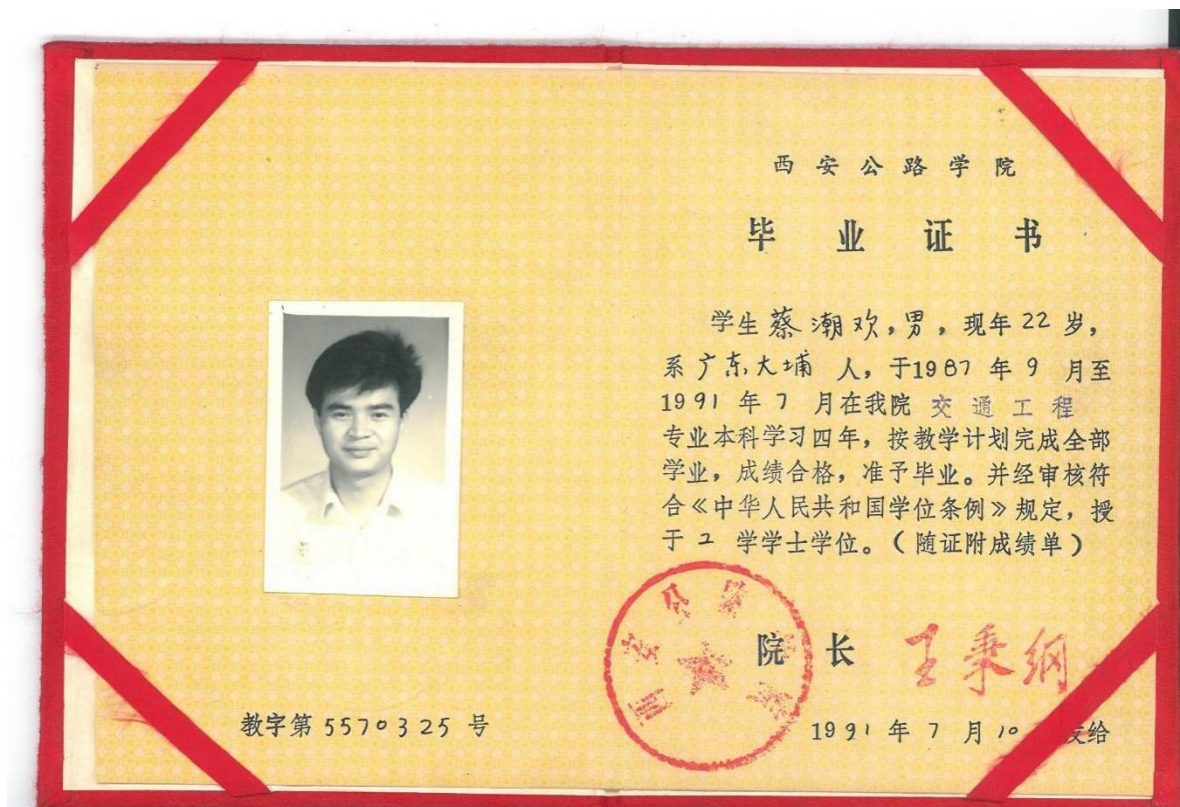 西安公路学院
毕业证书
学生蔡潮欢，男，现年22岁，
系广东大埔人，于1987年9月至
1991年7月在我院交通工程
专业本科学习四年，按教学计划完成全部
学业，成绩合格，准予毕业。并经审核符
合《中华人民共和国学位条例》规定，授
于工学学士学位。（随证附成绩单）
西安公路学院
院长 王秉纲
1991年7月10 发给
教字第5570325号